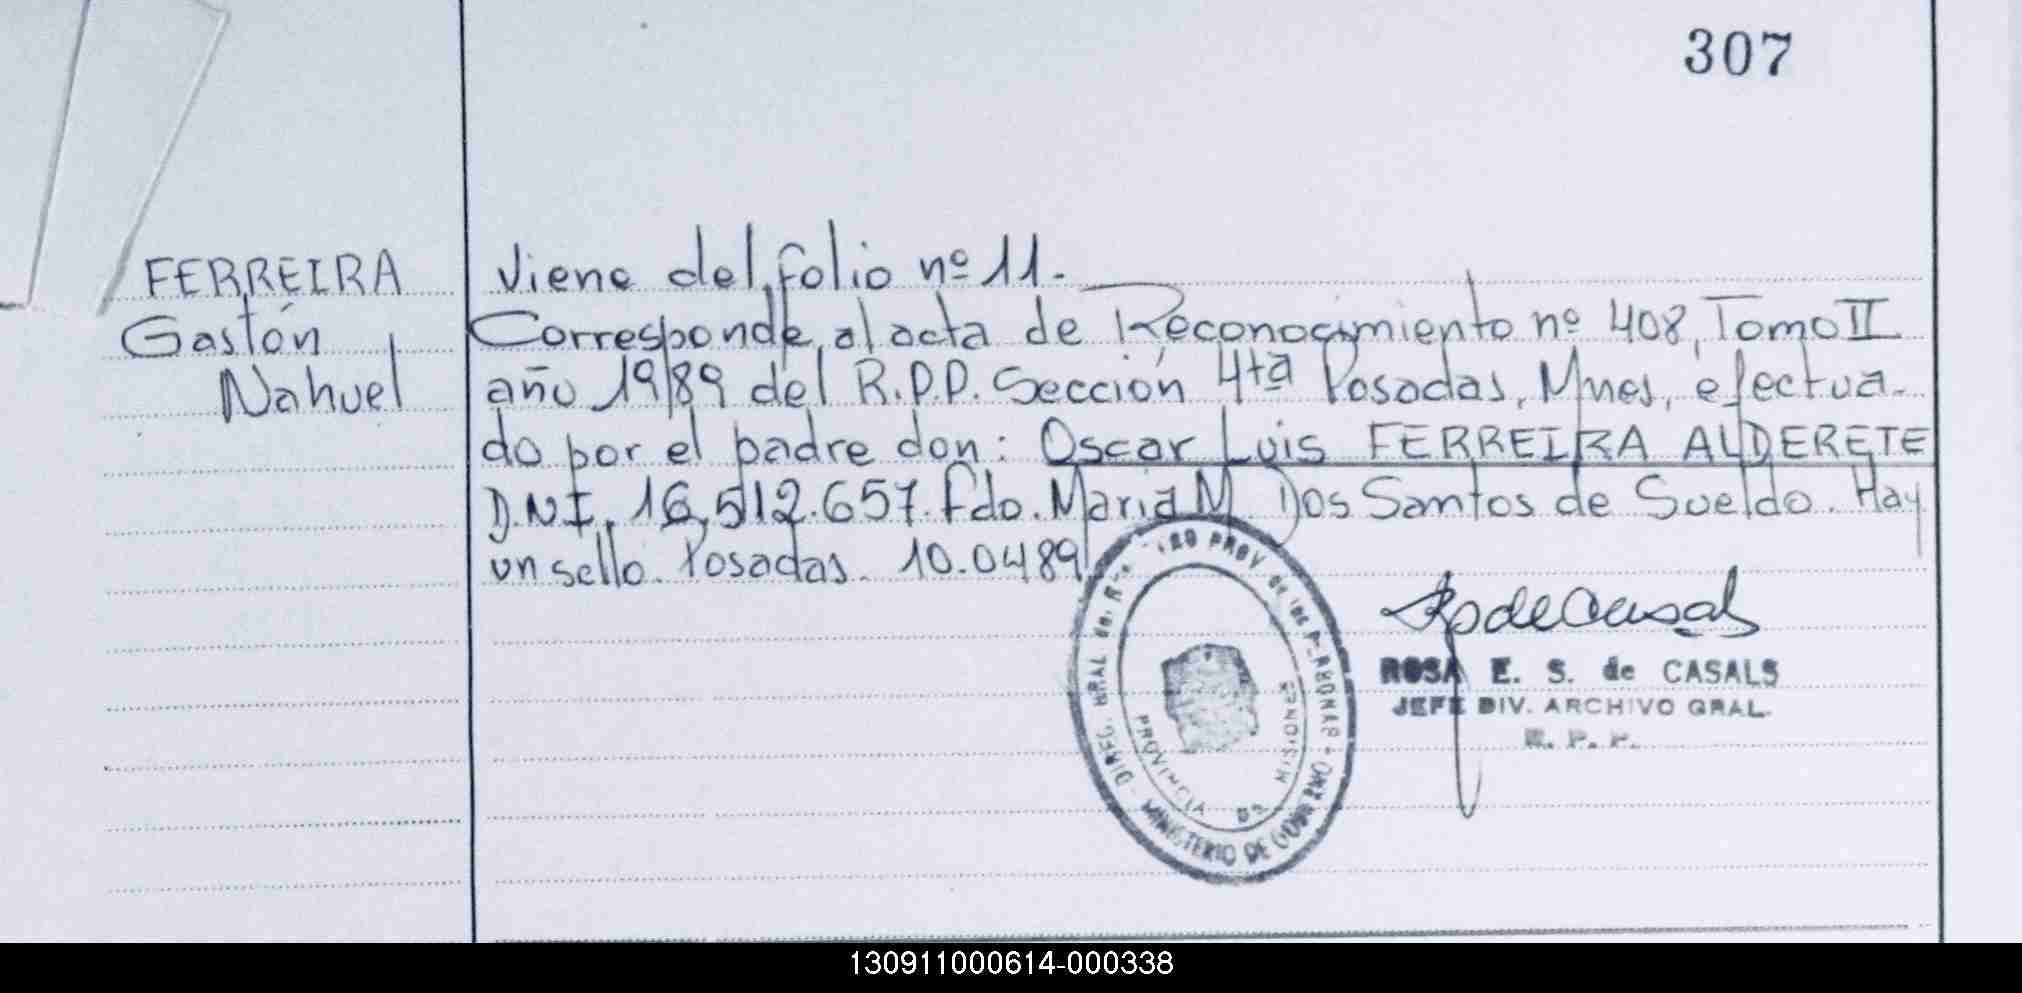 307
FERREIRA
Gastón
Nahuel
Viene del folio nº 11.-
Corresponde al acta de Reconocimiento nº 408, Tomo II
año 1989 del R.P.P. Sección 4ta Posadas, Mnes, efectua-
do por el padre don: Oscar Luis FERREIRA ALDERETE
D.N.I. 16.512.657. Fdo. Maria M. Dos Santos de Sueldo. Hay
un sello. Posadas. 10.04 89
DIREC. GRAL del PROV de las PERSONAS - MINISTERIO DE GOBIERNO
PROVINCIA DE MISIONES
ROSA E. S. de CASALS
JEFE DIV. ARCHIVO GRAL.
R. P. P.
130911000614-000338